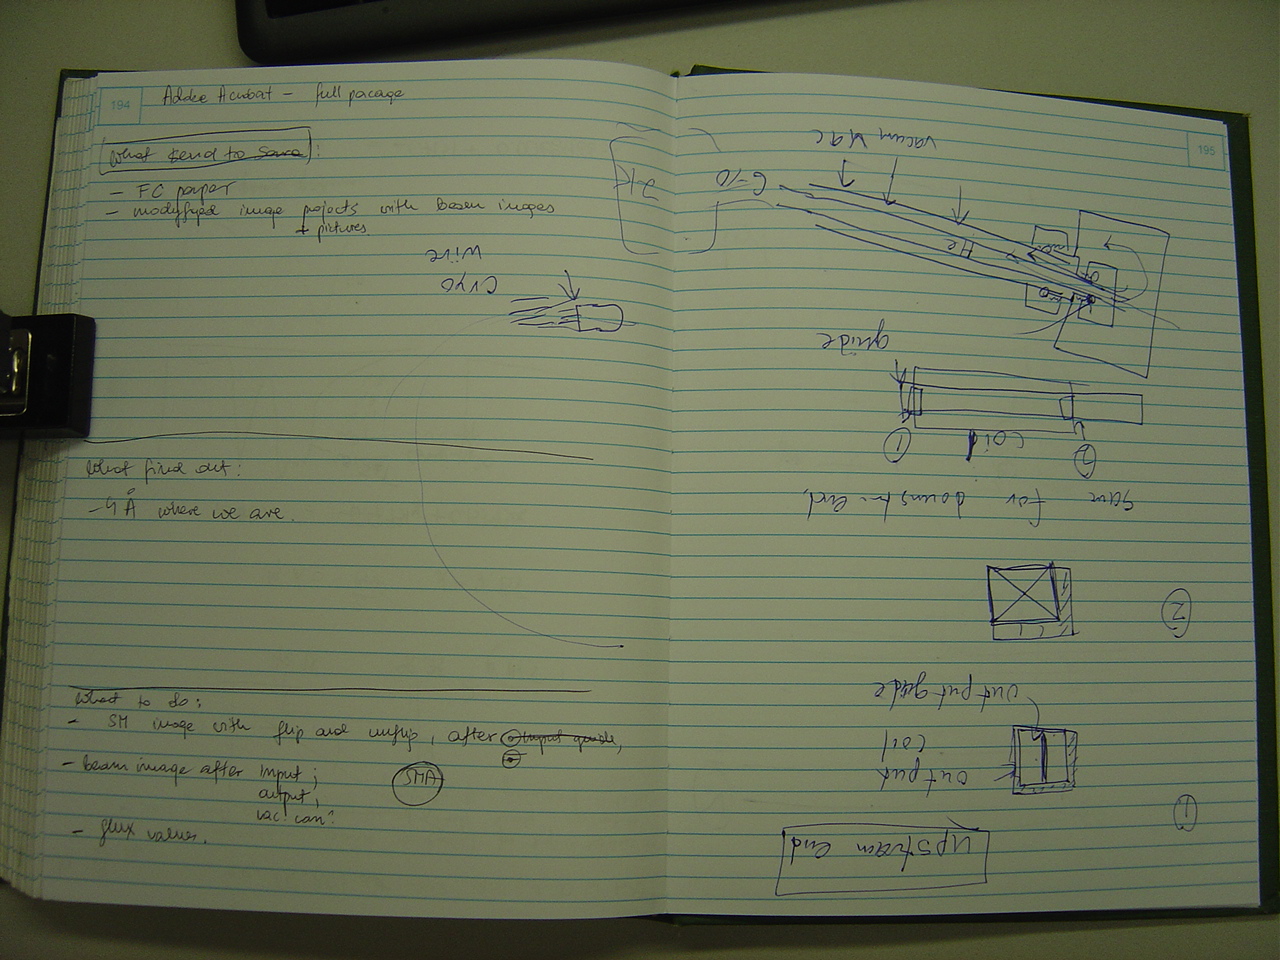 194
Adobe Acrobat - full pacage
What send to Sara :
- FC paper
- modyfyed image projects with beam images
+ pictures
wire
Cryo
What find out:
- 4 Å where we are.
What to do:
- SM image with flip and unflip, after input guide,
- beam image after input;
output,
vac. can?
SMA
- flux values.
195
Upstream end
1
output
coil
output guide
2
Same for downstr. end,
1
coil
2
guide
He
vacuum